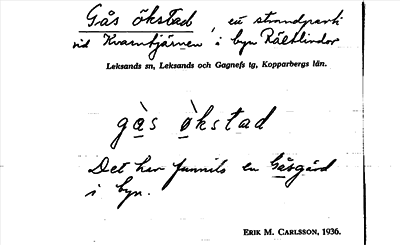 Gås ökstad, en strandpark
vid Kvarntjärnen i byn Rältlindor
Leksands sn, Leksands och Gagnefs tg, Kopparbergs län.
gȧ̀s ö̀kstad
Det har funnits en Gåsgård
i byn.
ERIK M. CARLSSON, 1936.